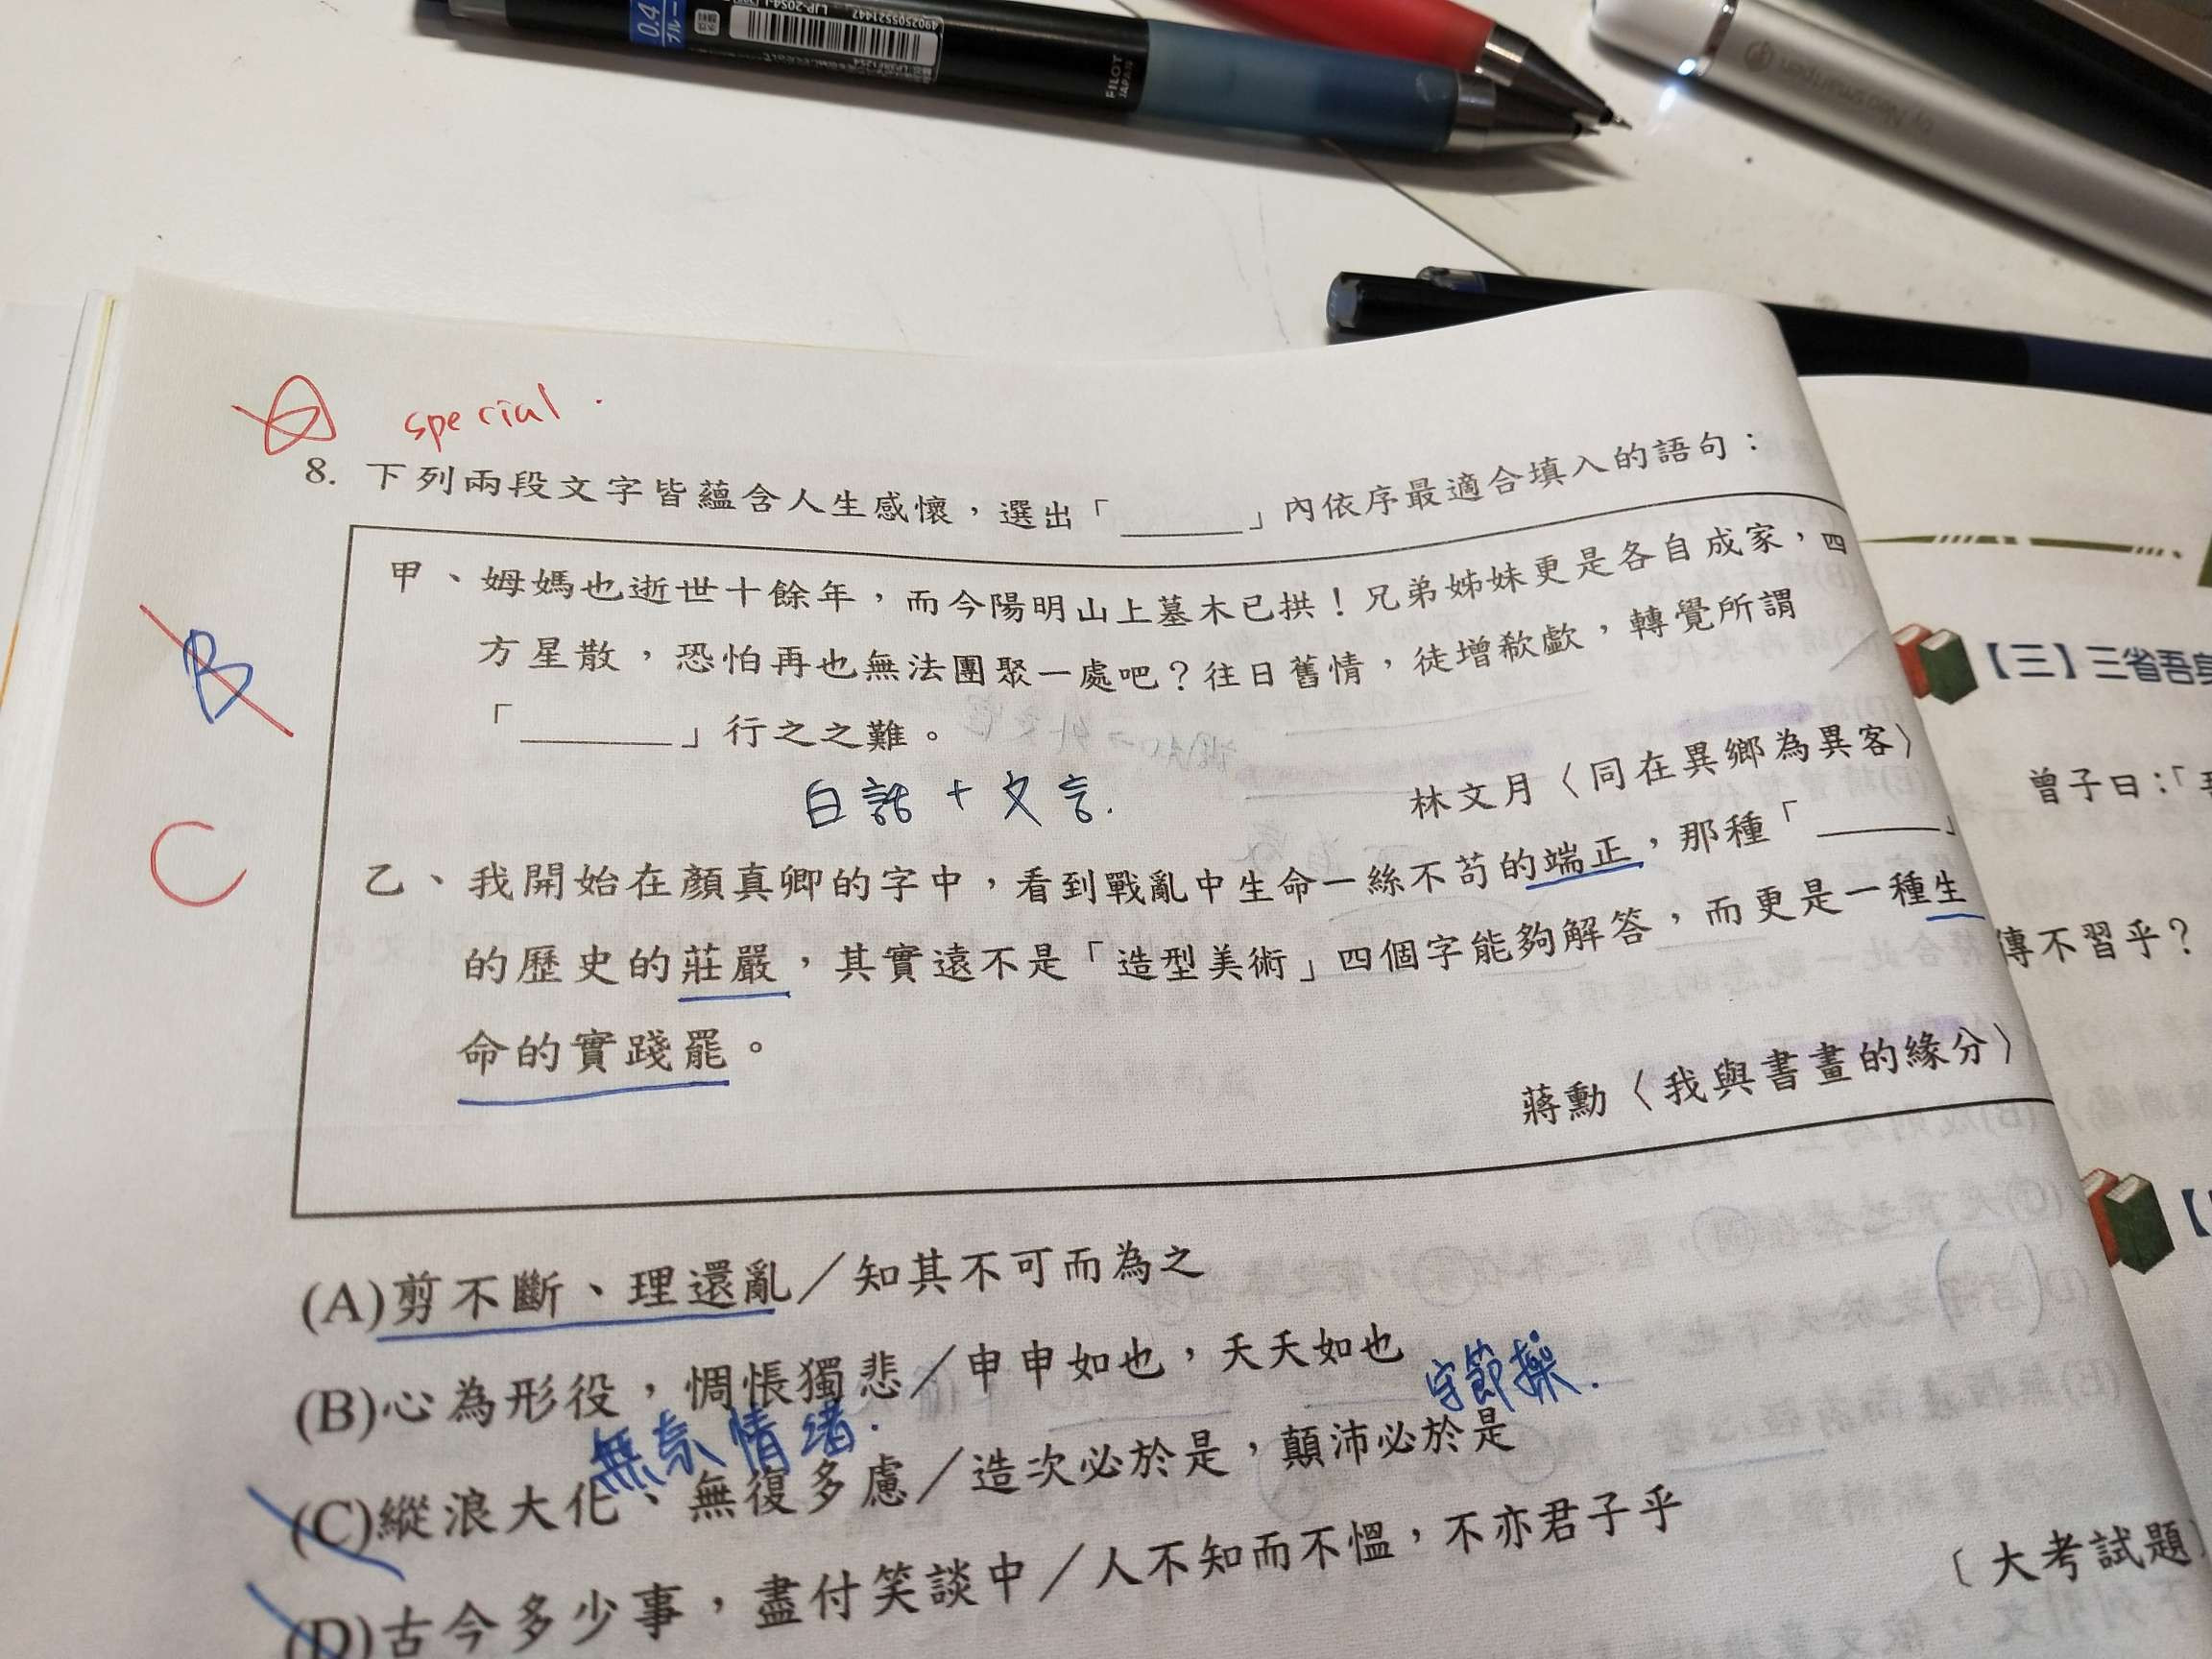 0.4
ブルー
LJP-20S4-L
4902505521447
PILOT
JAPAN
Neo smartpen
special.
8. 下列兩段文字皆蘊含人生感懷，選出「______」內依序最適合填入的語句：
甲、姆媽也逝世十餘年，而今陽明山上墓木已拱！兄弟姊妹更是各自成家，四
方星散，恐怕再也無法團聚一處吧？往日舊情，徒增欷歔，轉覺所謂
「______」行之之難。
B
白話 + 文言.
林文月〈同在異鄉為異客〉
C
乙、我開始在顏真卿的字中，看到戰亂中生命一絲不苟的端正，那種「______」
的歷史的莊嚴，其實遠不是「造型美術」四個字能夠解答，而更是一種生
命的實踐罷。
蔣勳〈我與書畫的緣分〉
(A)剪不斷、理還亂／知其不可而為之
(B)心為形役，惆悵獨悲／申申如也，夭夭如也
守節操.
無奈情緒.
(C)縱浪大化、無復多慮／造次必於是，顛沛必於是
(D)古今多少事，盡付笑談中／人不知而不慍，不亦君子乎
〔大考試題〕
【三】三省吾身
曾子曰：「
傳不習乎？
【